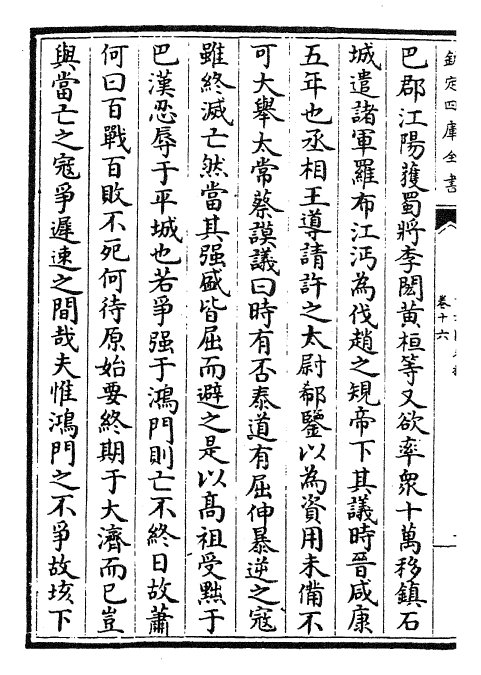 欽定四庫全書
卷十六
巴郡江陽獲蜀將李閎黃桓等又欲率衆十萬移鎮石
城遣諸軍羅布江沔為伐趙之規帝下其議時晉咸康
五年也丞相王導請許之太尉郗鑒以為資用未備不
可大舉太常蔡謨議曰時有否泰道有屈伸暴逆之寇
雖終滅亡然當其强盛皆屈而避之是以髙祖受黜于
巴漢忍辱于平城也若爭强于鴻門則亡不終日故蕭
何曰百戰百敗不死何待原始要終期于大濟而已豈
與當亡之寇爭遲速之間哉夫惟鴻門之不爭故垓下